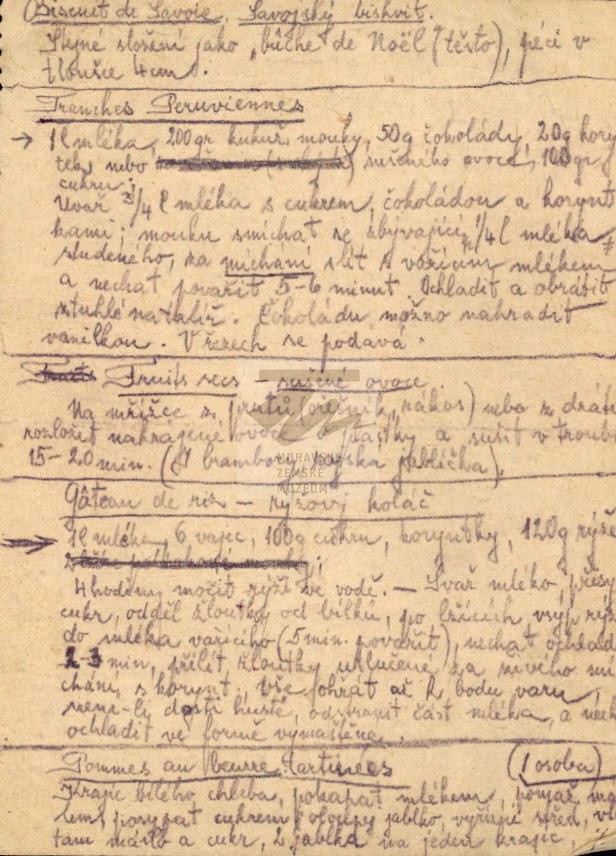 Biscuit de Savoie, Savojský biskvit.
Stejné složení jako „bûche de Noël" (těsto), péci v
tloušce 4cm.
Tranches Peruviennes
→ 1l mléka, 200gr kukuř. mouky, 50g čokolády, 20g kory
tek nebo sušeného ovoce, 100gr
cukru;
Uvař 3/4 l mléka s cukrem, čokoládou a korynt
kami; mouku smíchat se zbývající 1/4 l mléka
studeného, za míchání slít s vařícím mlékem
a nechat povařit 5-6 minut. Ochladit a obrátit
ztuhlé na talíř. Čokoládu možno nahradit
vanilkou. V řezech se podává.
Fruits secs - sušené ovoce
Na mřížce z prutů (ořešník, rákos) nebo z drátu
rozložit nakrájené ovoce a plátky a sušit v troub
15-20 min. (I brambory, jablíčka).
MORAVSKÉ
ZEMSKÉ
MUZEUM
Gâteau de riz - rýžový koláč
→ 1l mléka, 6 vajec, 100g cukru, koryntky, 120g rýže
4 hodiny močit rýži ve vodě. - Svař mléko, přesy
cukr, odděl žloutky od bílků, po lžících, vsyp rýž
do mléka vařícího (5 min. povařit), nechat ochlad
2-3 min, přilít žloutky utlučené za živého mí
chání, s korynt. Vše ohřát až k bodu varu,
není-li dosti husté, odstranit část mléka, a nech
ochladit ve formě vymaštěné.
Pommes au beurre tartinées (1 osoba)
Krajíc bílého chleba, pokapat mlékem, pomaž má
lem, posypat cukrem, oloupej jablko, vyřízni střed, vl
tam máslo a cukr, 2 jablka na jeden krajíc,